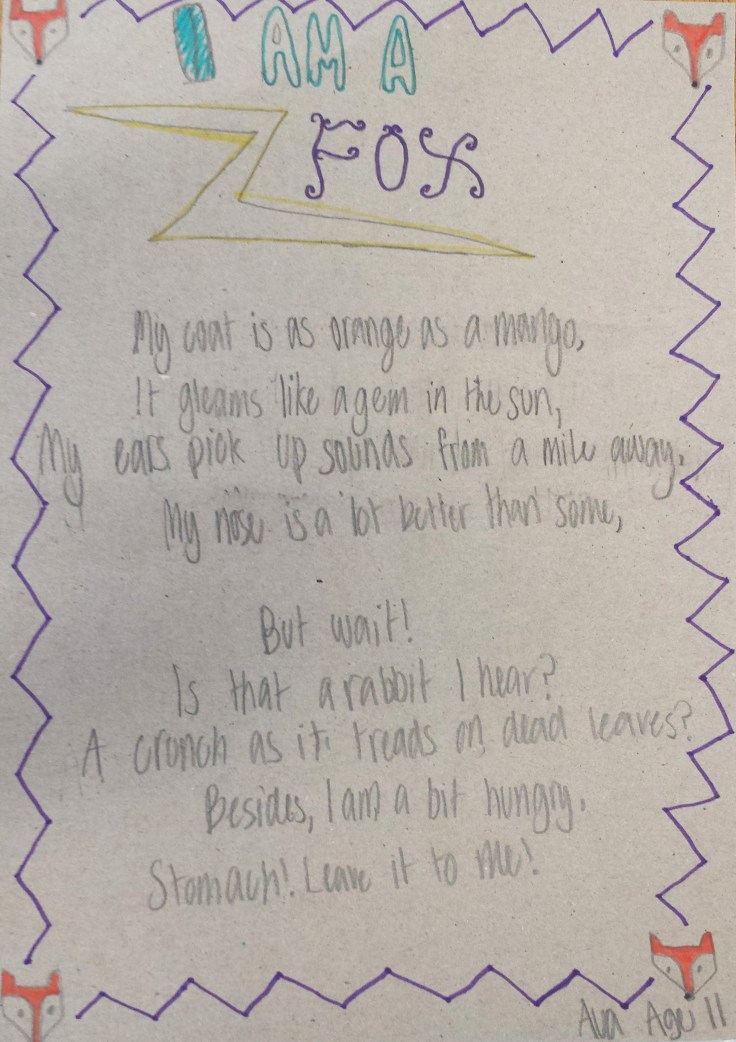 I AM A
FOX
My coat is as orange as a mango,
It gleams like a gem in the sun,
My ears pick up sounds from a mile away,
My nose is a lot better than some,
But wait!
Is that a rabbit I hear?
A crunch as it treads on dead leaves?
Besides, I am a bit hungry.
Stomach! Leave it to me!
Ava Age 11